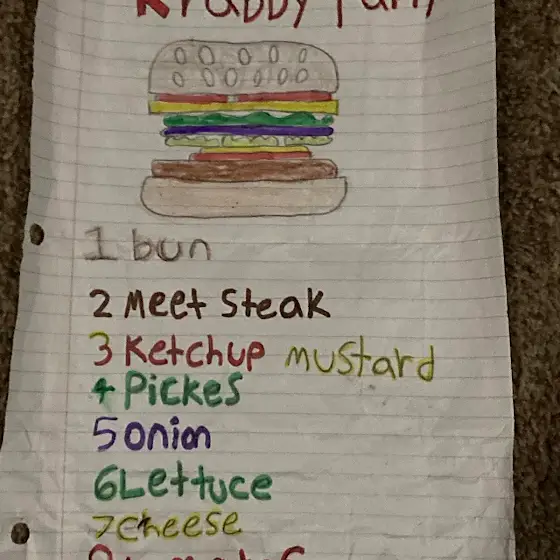 Krabby Patty
1 bun
2 Meet Steak
3 Ketchup mustard
4 Pickes
5 Onion
6 Lettuce
7 Cheese